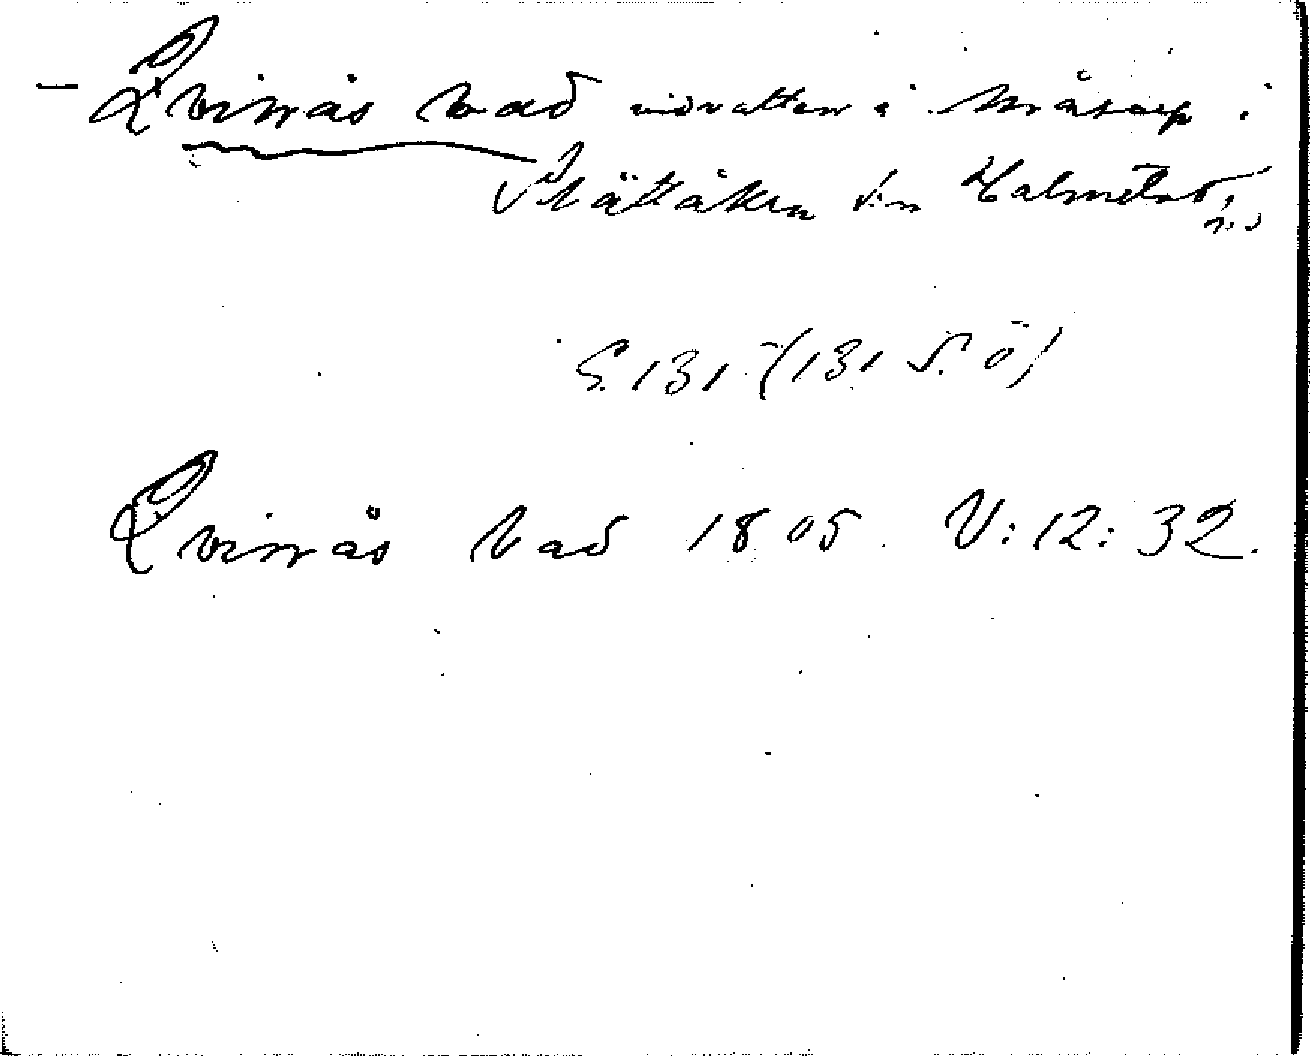 - Qvinnås vad vidvatten i Måsarp i
Slättåkra s:n Halmstad,
h:d
S. 131 (131 S. Ö)
Qvinnås vad 1805. V: 12: 32.